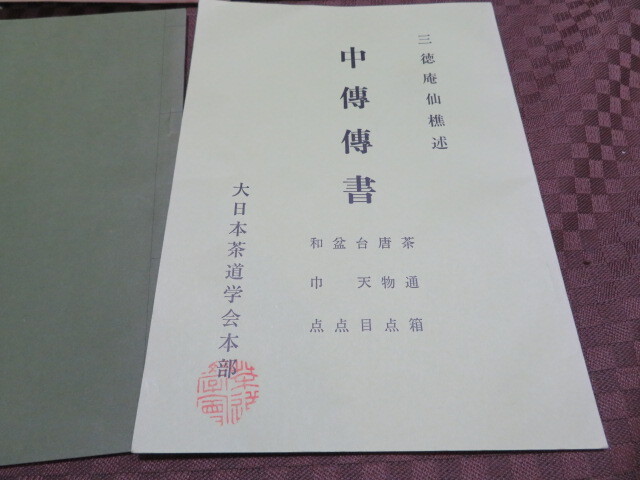 三徳庵仙樵述
中傳傳書
茶通箱
唐物点
台天目
盆点
和巾点
大日本茶道学会本部